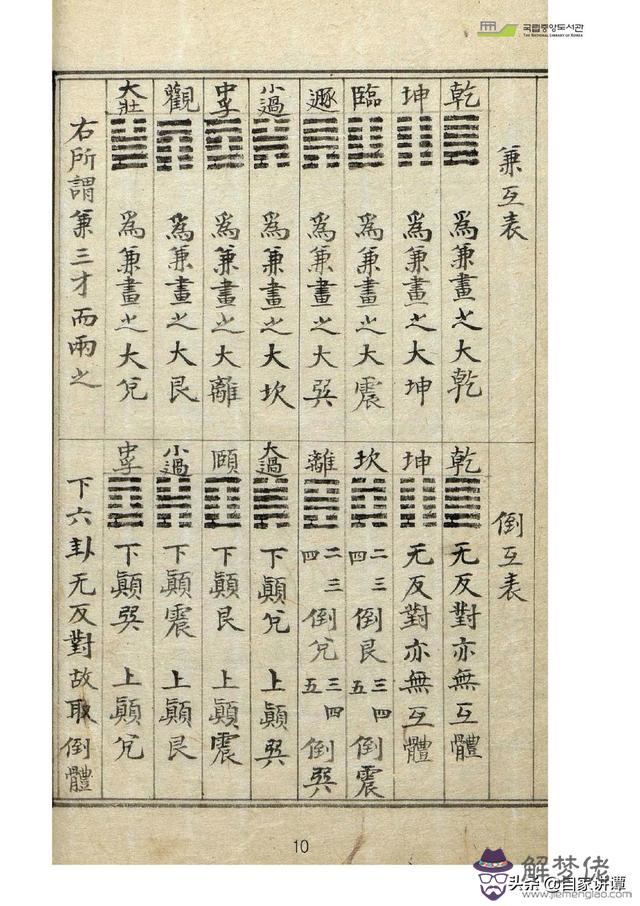 국립중앙도서관
THE NATIONAL LIBRARY OF KOREA
兼互表
乾 爲兼畫之大乾
坤 爲兼畫之大坤
臨 爲兼畫之大震
遯 爲兼畫之大巽
小過 爲兼畫之大坎
中孚 爲兼畫之大離
觀 爲兼畫之大艮
大壯 爲兼畫之大兌
右所謂兼三才而兩之
倒互表
乾 无反對亦無互體
坤 无反對亦無互體
坎 二三四倒艮 三四五倒震
離 二三四倒兌 三四五倒巽
大過 下顚兌 上顚巽
頤 下顚艮 上顚震
小過 下顚震 上顚艮
中孚 下顚巽 上顚兌
下六卦无反對故取倒體
10
解梦佬
头条 @自家讲谭
www.jiemenglao.com